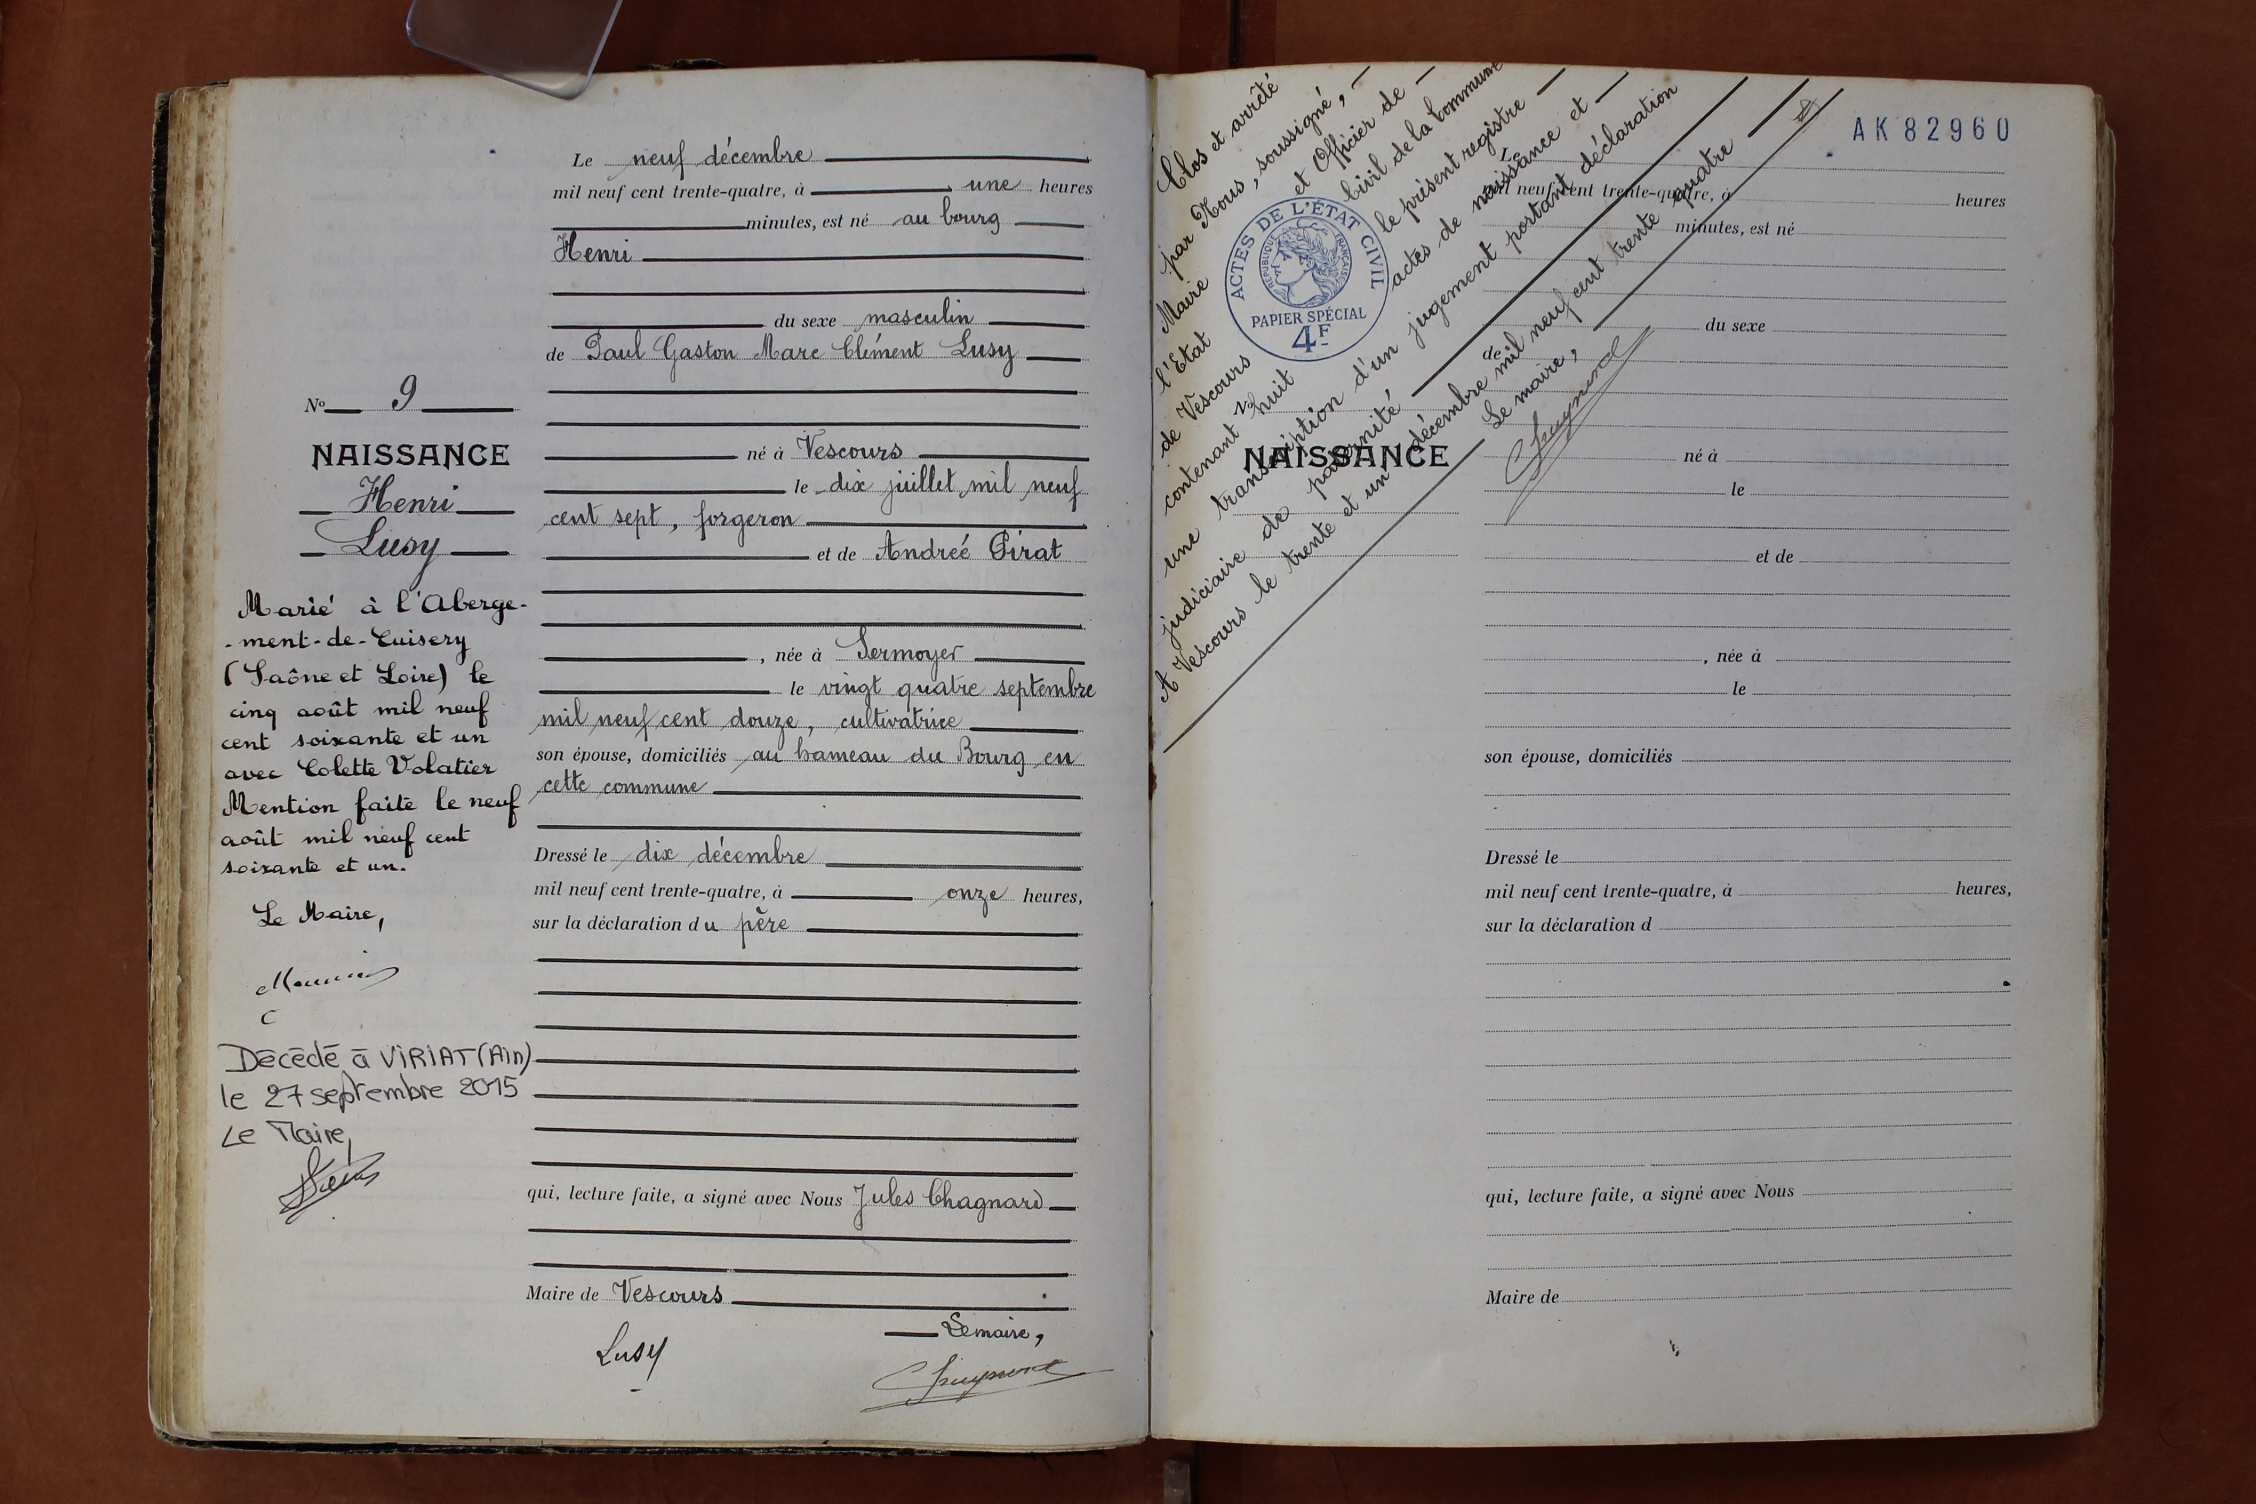 Le neuf décembre
mil neuf cent trente-quatre, à une heures
minutes, est né au bourg
Henri
du sexe masculin
de Paul Gaston Marc Clément Lusy
né à Vescours
le dix juillet mil neuf
cent sept, forgeron
et de Andreé Pirat
, née à Sermoyer
le vingt quatre septembre
mil neuf cent douze, cultivatrice
son épouse, domiciliés au hameau du Bourg en
cette commune
Dressé le dix décembre
mil neuf cent trente-quatre, à onze heures,
sur la déclaration du père
qui, lecture faite, a signé avec Nous Jules Chagnard
Maire de Vescours
Le maire,
Lusy
No 9
NAISSANCE
Henri
Lusy
Marié à l'Aberge-
-ment-de-Cuisery
(Saône et Loire) le
cinq août mil neuf
cent soixante et un
avec Colette Volatier
Mention faite le neuf
août mil neuf cent
soixante et un.
Le Maire,
Décédé à VIRIAT (Ain)
le 27 septembre 2015
Le Maire,
AK 82960
Clos et arrêté
par Nous, soussigné,
Maire et Officier de
l'Etat Civil de la Commune
de Vescours le présent registre
contenant huit actes de naissance et
une transcription d'un jugement portant déclaration
judiciaire de paternité
A Vescours le trente et un décembre mil neuf cent trente quatre
Le maire,
ACTES DE L'ÉTAT CIVIL
RÉPUBLIQUE FRANÇAISE
PAPIER SPÉCIAL
4F
No
NAISSANCE
Le
mil neuf cent trente-quatre, à heures
minutes, est né
du sexe
de
né à
le
et de
, née à
le
son épouse, domiciliés
Dressé le
mil neuf cent trente-quatre, à heures,
sur la déclaration d
qui, lecture faite, a signé avec Nous
Maire de